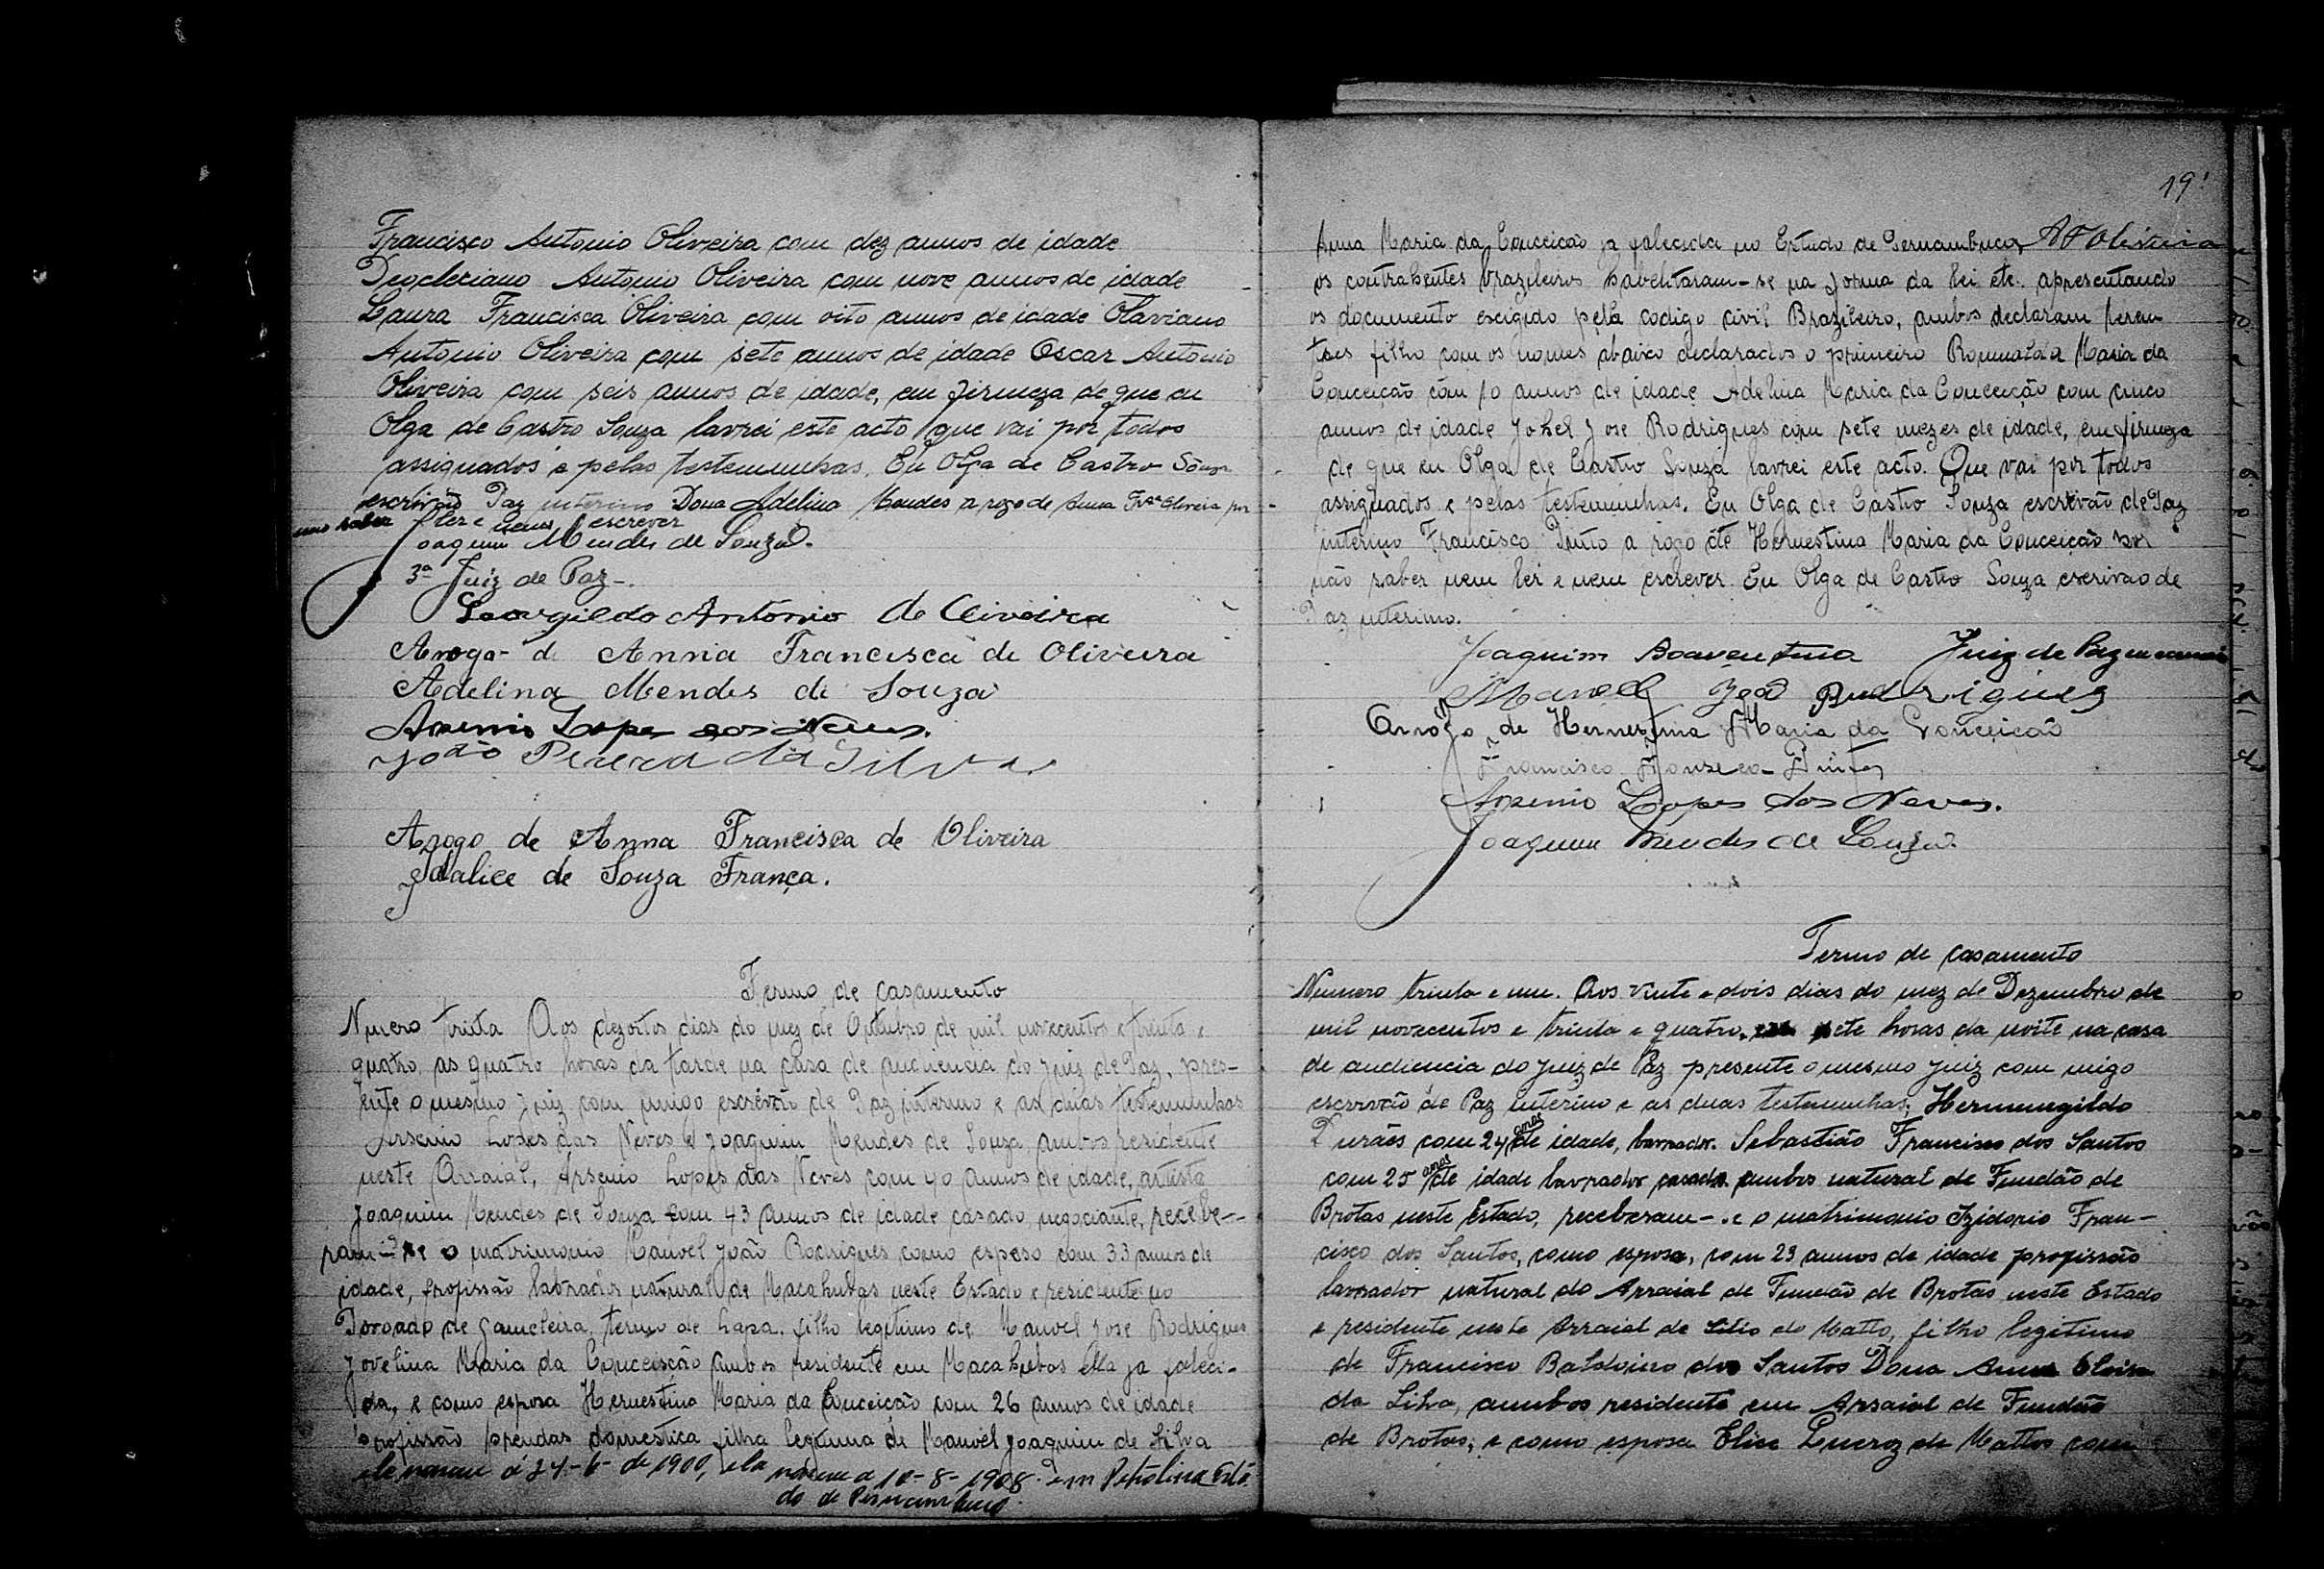 Francisco Antonio Oliveira com dez annos de idade
Deocleciano Antonio Oliveira com nove annos de idade
Laura Francisca Oliveira com oito annos de idade Otaviano
Antonio Oliveira com sete annos de idade Oscar Antonio
Oliveira com seis annos de idade, em firmeza de que eu
Olga de Castro Souza lavrei este acto que vai por todos
assignados e pelas testemunhas. Eu Olga de Castro Souza
escrivão Paz interino Dona Adelina Mendes a rogo de Anna Frca Oliveira por
não saber ler e nem escrever
Joaquim Mendes de Souza.
3º Juiz de Paz
Leovgildo Antonio de Oliveira
Arogo de Anna Francisca de Oliveira
Adelina Mendes de Souza
Arsenio Lopes dos Neves.
João Pereira da Silva
Arogo de Anna Francisca de Oliveira
Idalice de Souza França.
Termo de casamento
Nuero trinta Aos dezoitos dias do mez de Outubro de mil novecentos e trinta e
quatro, as quatro horas da tarde na casa de audiencia do Juiz de Paz, pres-
ente o mesmo Juiz com migo escrivão de Paz interino e as duas testemunhas
Arsenio Lopes das Neves e Joaquim Mendes de Souza, ambos residente
neste Arraial, Arsenio Lopes das Neves com 40 annos de idade, artista
Joaquim Mendes de Souza com 43 annos de idade casado, negociante, recebe-
ram-se o matrimonio Manoel João Rodrigues como esposo com 33 annos de
idade, profissão labrador natural de Macahubas neste Estado e residente no
Povoado de Gameleira, termo de Lapa. filho legitimo de Manoel Jose Rodrigues
Jovelina Maria da Conceisção ambos residente em Macahubas ella ja faleci-
da, e como esposa Hernestina Maria da Conceição com 26 annos de idade
profissão prendas domestica filha legitima de Manoel Joaquim de Silva
ele nasceu á 24-6- de 1900, ela nasceu a 10-8-1908. em Petrolina Esta
do de Pernambuco.
19
Anna Maria da Conceicão ja falecida no Estado de Pernambuco,
os contrahentes brazileiros habelitaram-se na forma da lei etc. apresentando
os documento escigido pela codigo civil Brazileiro, ambos declaram serem
tres filho com os nomes abaixo declarados o primeiro Romualda Maria da
Conceição com 10 annos de idade Adelina Maria da Conceição com cinco
annos de idade Johel Jose Rodrigues com sete mezes de idade, em firmeza
de que eu Olga de Castro Souza lavrei este acto. Que vai por todos
assignados e pelas testemunhas. Eu Olga de Castro Souza escrevão de Paz
interino Francisco Pinto a rogo de Hernestina Maria da Conceição por
não saber nem ler e nem escrever Eu Olga de Castro Souza escrivão de
Paz interino.
Joaquim Boaventura Juiz de Paz
Manoel João Rudrigues
Arrôgo de Hernestina Maria da Conceicão
Francisco Pinto
Arsenio Lopes dos Neves.
Joaquim Mendes de Souza.
Termo de casamento
Numero trinta e um. Aos vinte e dois dias do mez de Dezembro de
mil novecentos e trinta e quatro, sete horas da noite na casa
de audiencia do Juiz de Paz presente o mesmo juiz com migo
escrivão de Paz interino e as duas testemunhas, Hermengildo
Durães com 24 anos de idade, lavrador. Sebastião Francisco dos Santos
com 25 anos de idade lavrador casado ambos natural de Fundão de
Brotas neste Estado, receberam-.e o matrimonio Izidorio Fran-
cisco dos Santos, como esposo, com 23 annos de idade profissão
lavrador natural do Arraial de Fundão de Brotas neste Estado
e residente neste Arraial de Sitio do Matto, filho legitimo
de Francisco Baldoino dos Santos Dona Anna
da Silva, ambos residente em Arraial de Fundão
de Brotas, e como esposa Elisa de Mattos com